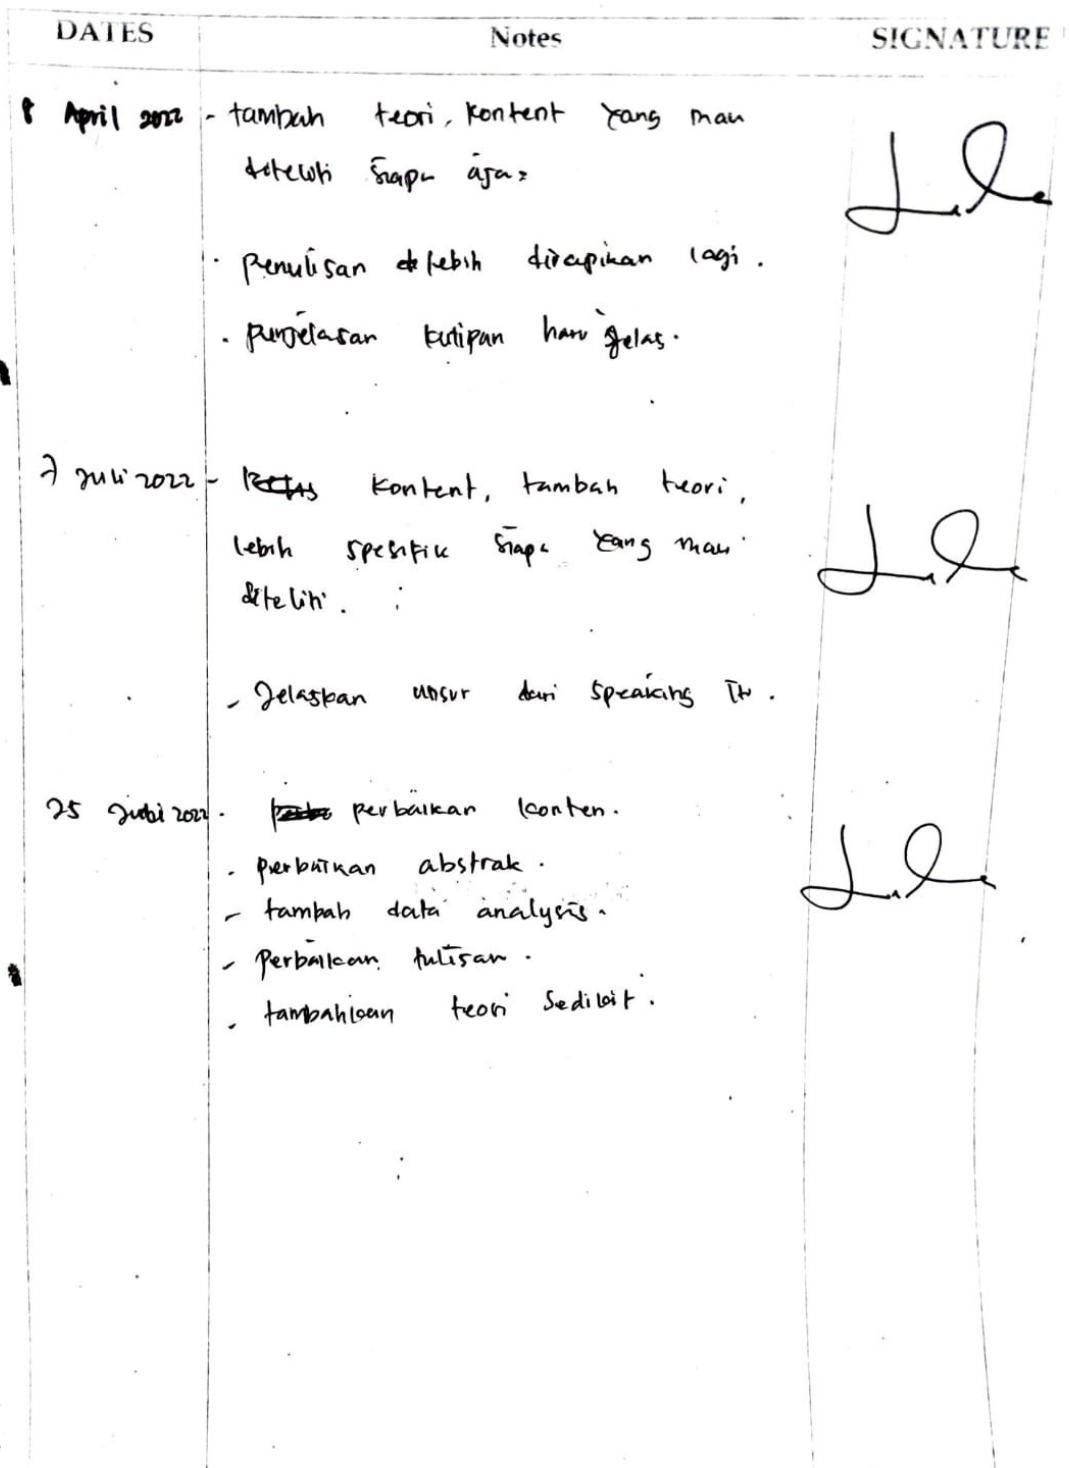 DATES Notes SIGNATURE
8 April 2022 - tambah teori, kontent yang mau
diteliti siapa aja?
. penulisan lebih dirapikan lagi.
. penjelasan kutipan haru jelas.
7 Juli 2022 - kontent, tambah teori,
lebih spesifik siapa yang mau
diteliti.
- Jelaskan unsur dari speaking
25 2022 . perbaikan konten.
. perbaikan abstrak.
- tambah data analysis.
- Perbaikan tulisan.
. tambahkan teori sedikit.